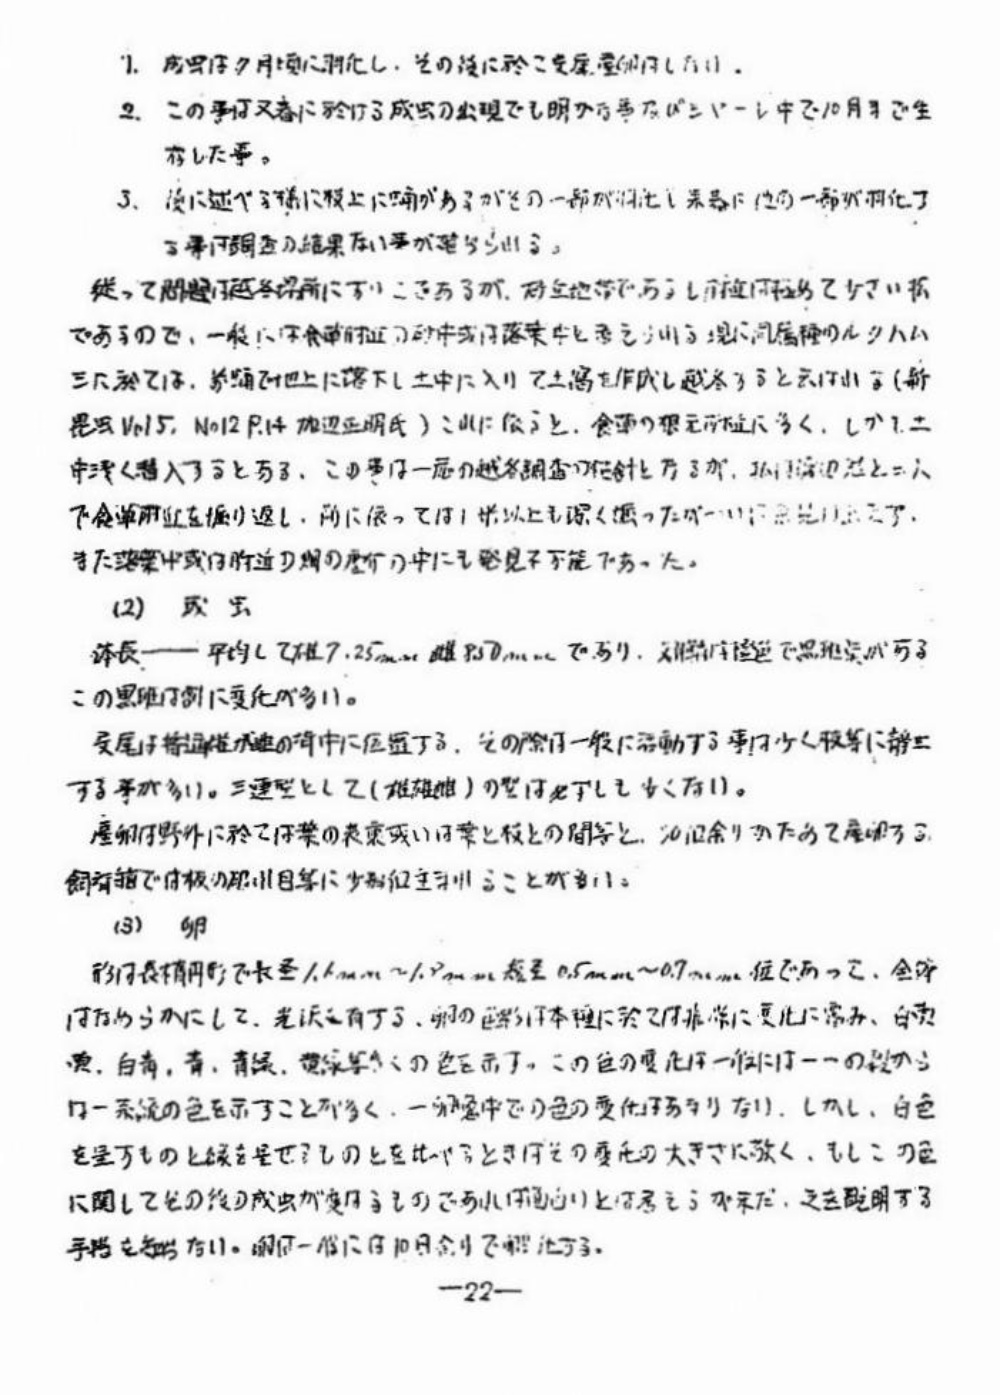 1. 成虫は9月頃に羽化し、その後に於て交尾産卵はしない。
2. この事は又春に於ける成虫の出現でも明かな事及びシャーレ中で10月まで生
存した事。
3. 後に述べる様に枝上に蛹があるがその一部が羽化し 他の一部が羽化す
る事は調査の結果ない事が
従って問題は越冬場所に あるが、 地帯であるし 附近は極めて小さい
であるので、一般には食草附近の砂中或は落葉中と考えられる 現に同属種のルリハム
シに於ては、 地上に落下し土中に入りて土窩を作成し越冬すると云はれる(新
昆虫Vol5, No12 P.14 正明氏)これに依ると、食草の根元附近に多く、しかも土
中浅く潜入するとある、この事は一応の越冬調査の となるが、私は と二人
で食草附近を掘り返し、所に依っては1米以上も深く掘ったが
また落葉中或は附近の畑の の中にも発見不可能であった。
(2) 成虫
体長—— 平均して雄7.25mm 雌8.50mmであり、 は橙色で黒斑 がある
この黒斑は割に変化が多い。
交尾は普通雄が雌の背中に位置する、その際は一般に活動する事は少く板等に静止
する事が多い。三連型として(雄雄雌)の型は必ずしも少くない。
産卵は野外に於ては葉の表裏或いは葉と枝との間等と、 余りかためて産卵する、
飼育箱では板の 目等に少 ることが多い。
(3) 卵
形は長楕円形で長径 短径0.5mm~0.7mm位であって、全体
はなめらかにして、光沢を有する、卵の色彩は本種に於ては非常に変化に富み、白黄
、白青、青、青緑、 多くの色を示す。この色の変化は一般には一一の から
は一系統の色を示すことが多く、一卵塊中での色の変化はあまりない、しかし、白色
を呈すものと緑を呈せるものとを比べるときはその変化の大きさに驚く、もしこの色
に関してその後の成虫が変はるものであれば面白いとは考えるが未だ、之を説明する
手 ない。卵は一般には10日余りで孵化する。
—22—